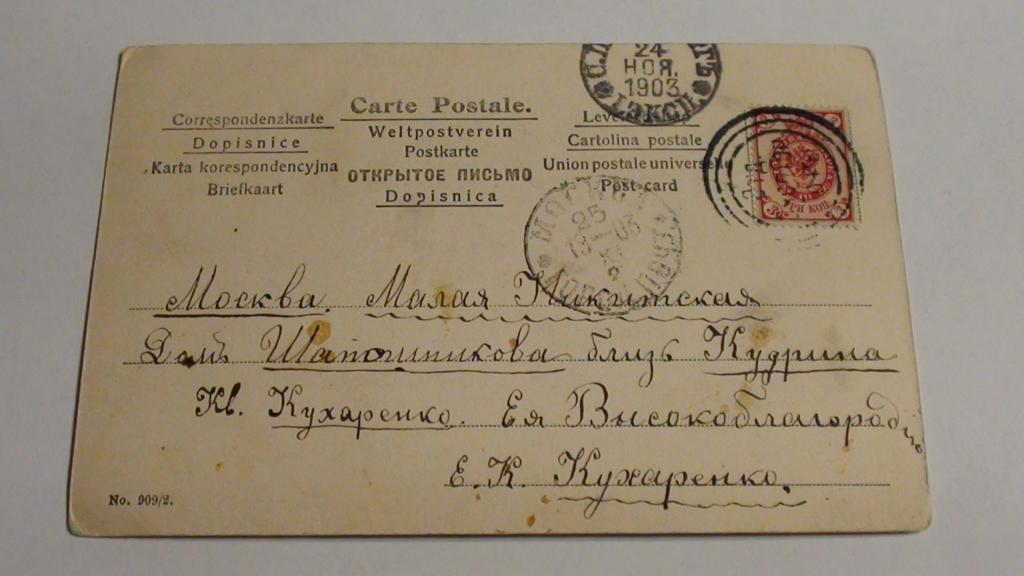 24
НОЯ.
1903
Carte Postale.
Correspondenzkarte
Dopisnice
Karta korespondencyjna
Briefkaart
Weltpostverein
Postkarte
ОТКРЫТОЕ ПИСЬМО
Dopisnica
Cartolina postale
Union postale universelle
Post-card
ТРИ КОП.
МОСКВА
25
Москва. Малая Никитская
Домъ Шапошникова близъ Кудрина
Кв. Кухаренко. Ея Высокоблагородію
Е. К. Кухаренко.
No. 909/2.